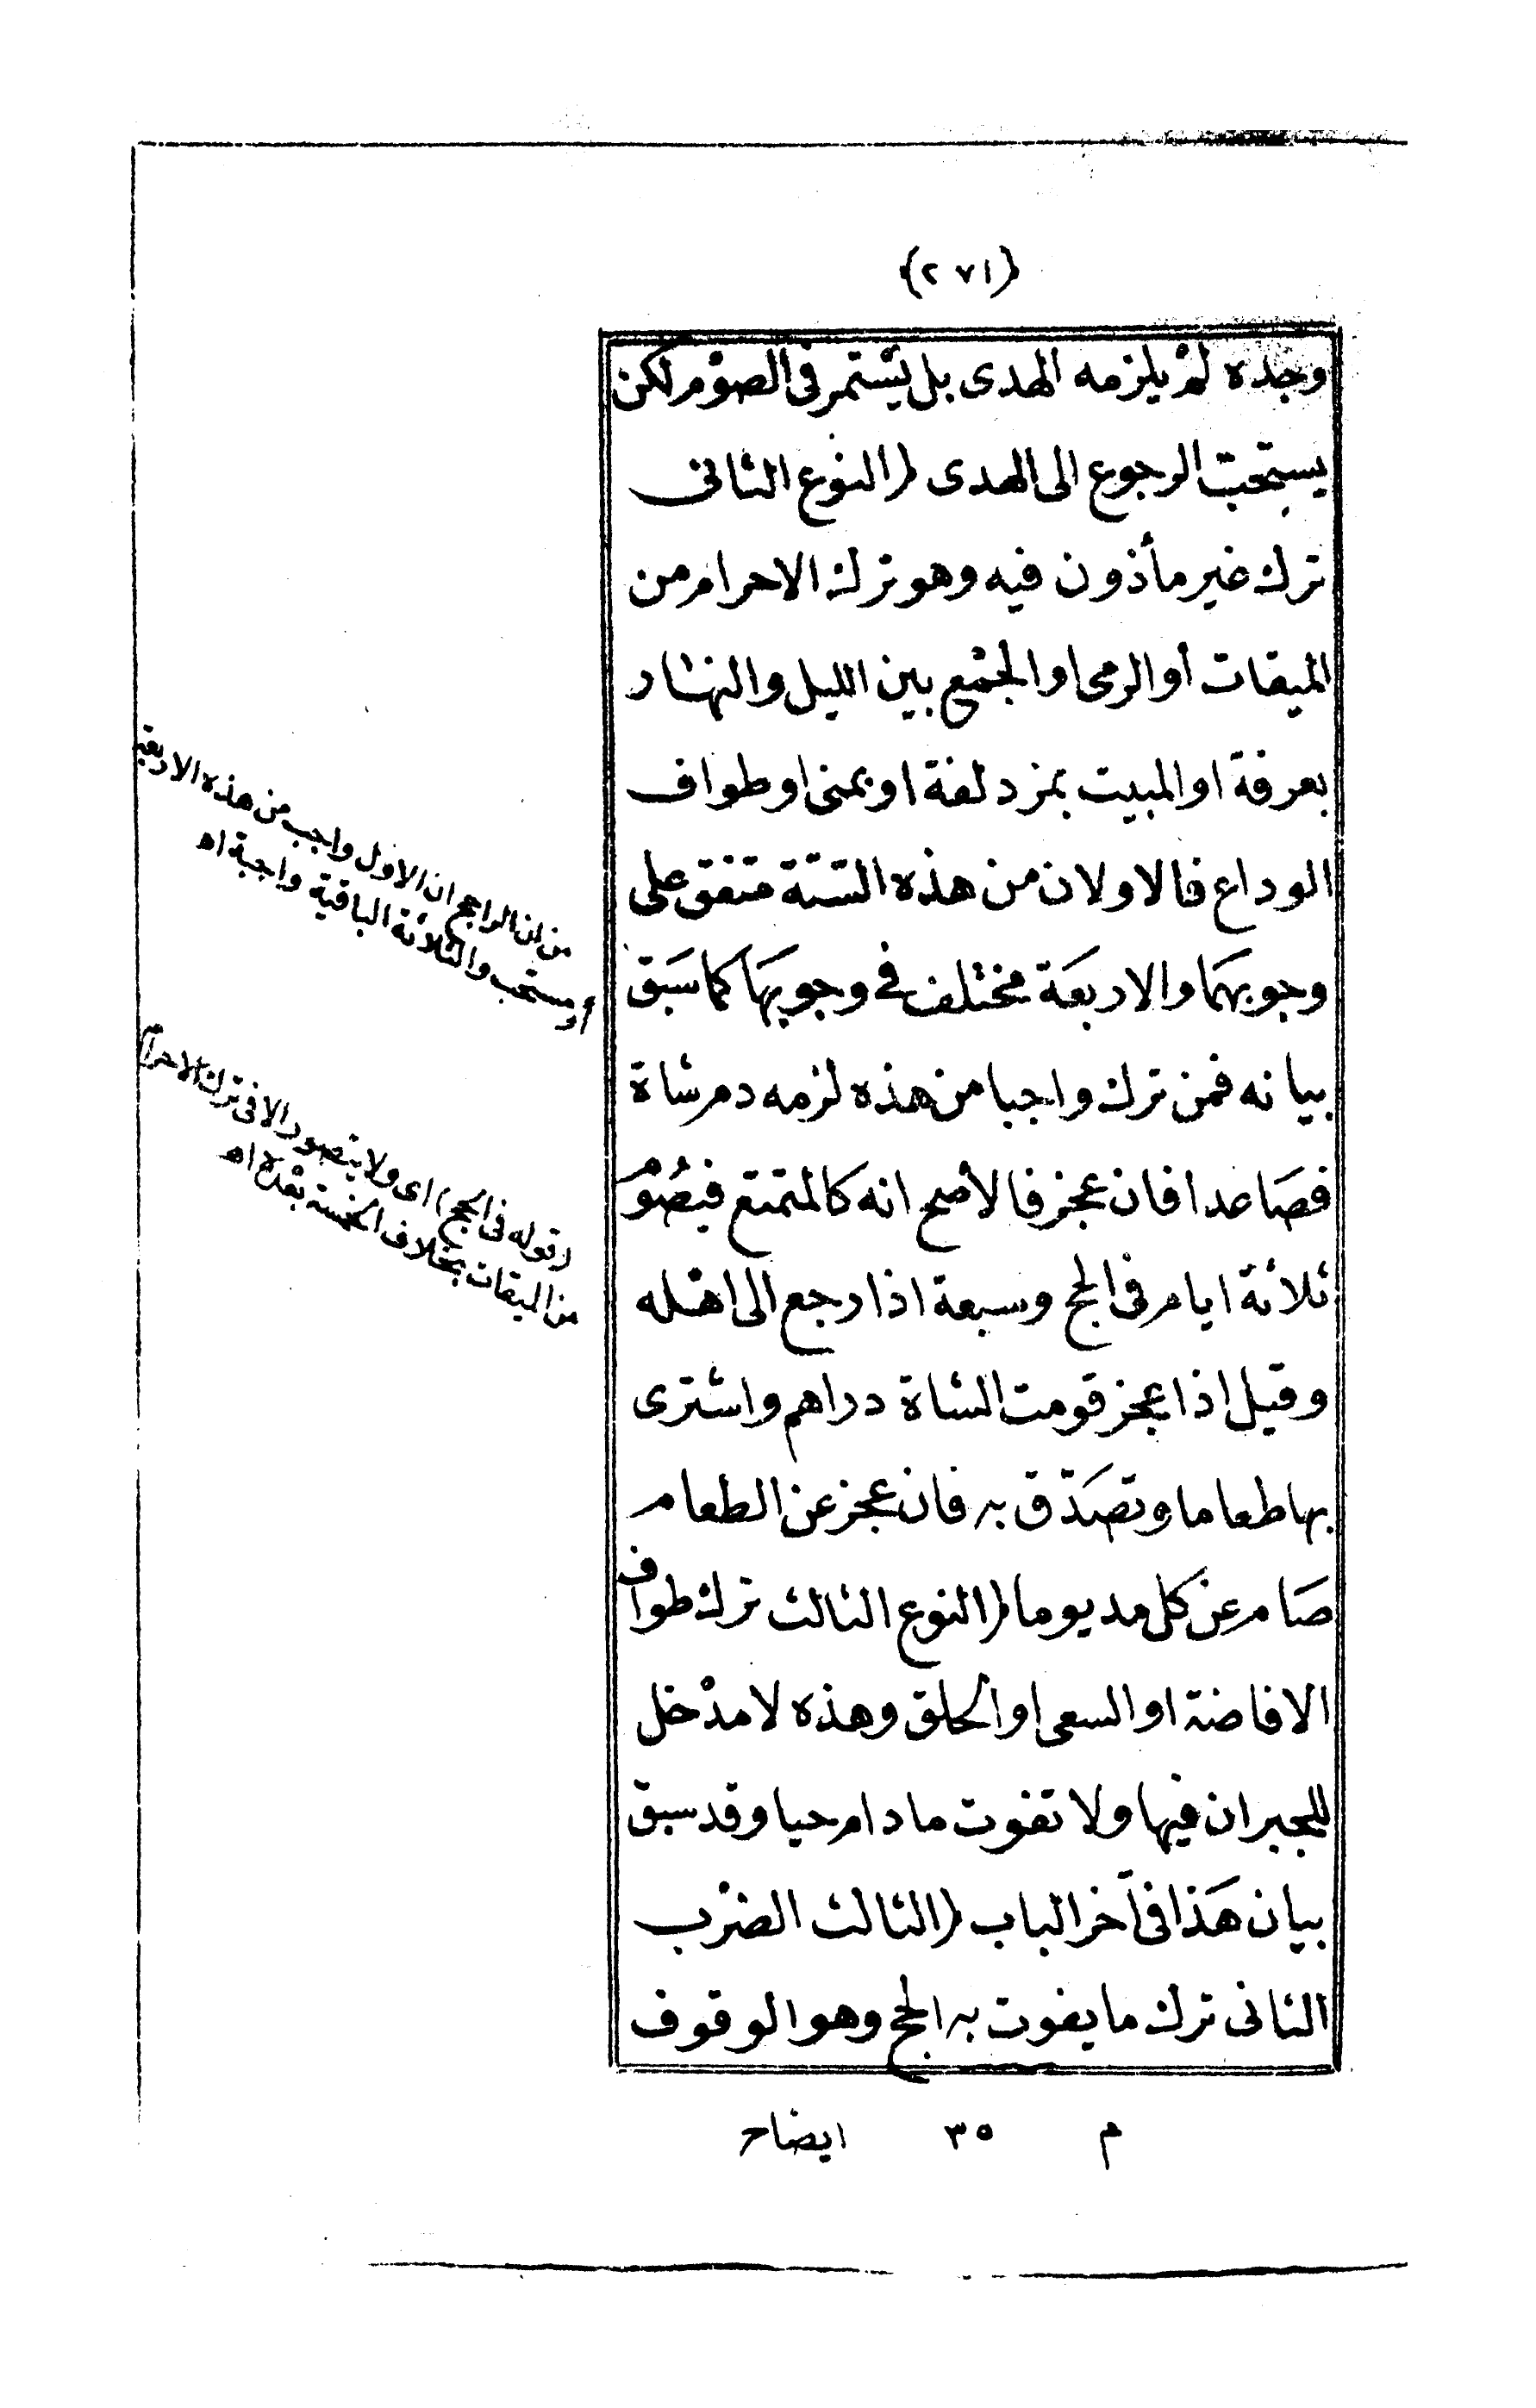 (٢٧١)
وجده لم يلزمه الهدى بل يستمر فى الصوم لكن
يستحب الرجوع الى الهدى (النوع الثانى
ترك غير مأذون فيه وهو ترك الاحرام من
الميقات أو الرمى او الجمع بين الليل والنهار
بعرفة او المبيت بمزدلفة او بمنى او طواف
الوداع فالاولان من هذه الستة متفق على
وجوبهما والاربعة مختلف فى وجوبها كما سبق
بيانه فمن ترك واجبا من هذه لزمه دم شاة
فصاعدا فان عجز فالأصح انه كالمتمتع فيصوم
ثلاثة ايام فى الحج وسبعة اذا رجع الى اهله
وقيل اذا عجز قومت الشاة دراهم واشترى
بها طعاما وتصدق به فان عجز عن الطعام
صام عن كل مد يوما (النوع الثالث ترك طواف
الافاضة او السعى او الحلق وهذه لا مدخل
للجبران فيها ولا تفوت ما دام حيا وقد سبق
بيان هذا فى آخر الباب (الثالث الضرب
الثانى ترك ما يفوت به الحج وهو الوقوف
من ان الراجح ان الاول واجب من هذه الاربعة
أو مستحب والثلاثة الباقية واجبة اه
(قوله فى الحج) اى ولا يتصور الا فى ترك الاحرام
من الميقات بخلاف الخمسة بعده اه
م ٣٥ ايضاح